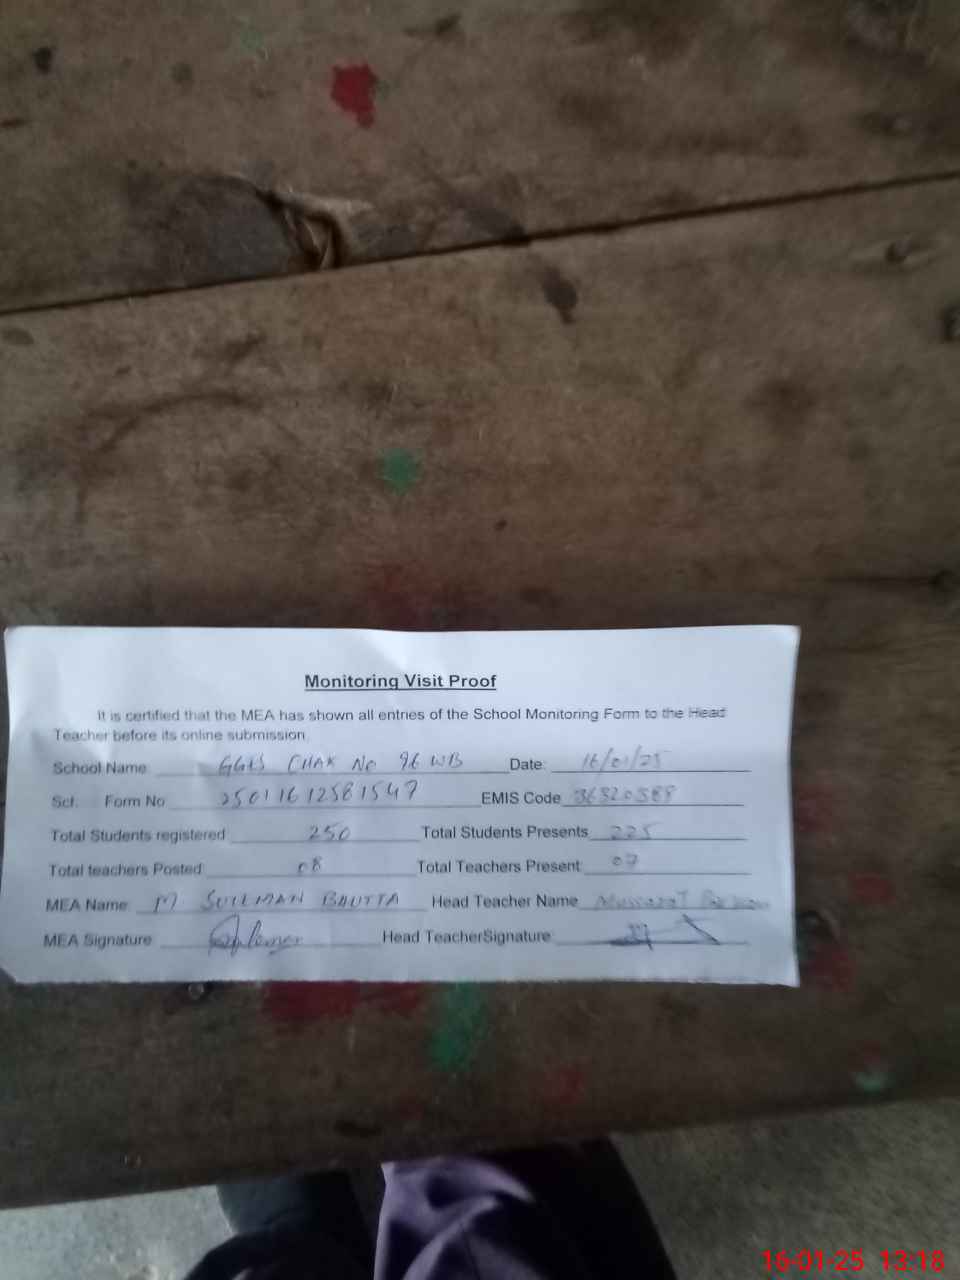 Monitoring Visit Proof
It is certified that the MEA has shown all entries of the School Monitoring Form to the Head
Teacher before its online submission.
School Name: GGES CHAK No 96 WB Date: 16/01/25
Scl. Form No 25011612581547 EMIS Code 36320389
Total Students registered 250 Total Students Presents 225
Total teachers Posted 08 Total Teachers Present 07
MEA Name: M SULEMAN BHUTTA Head Teacher Name Mussarat
MEA Signature Head TeacherSignature
16-01-25 13:18